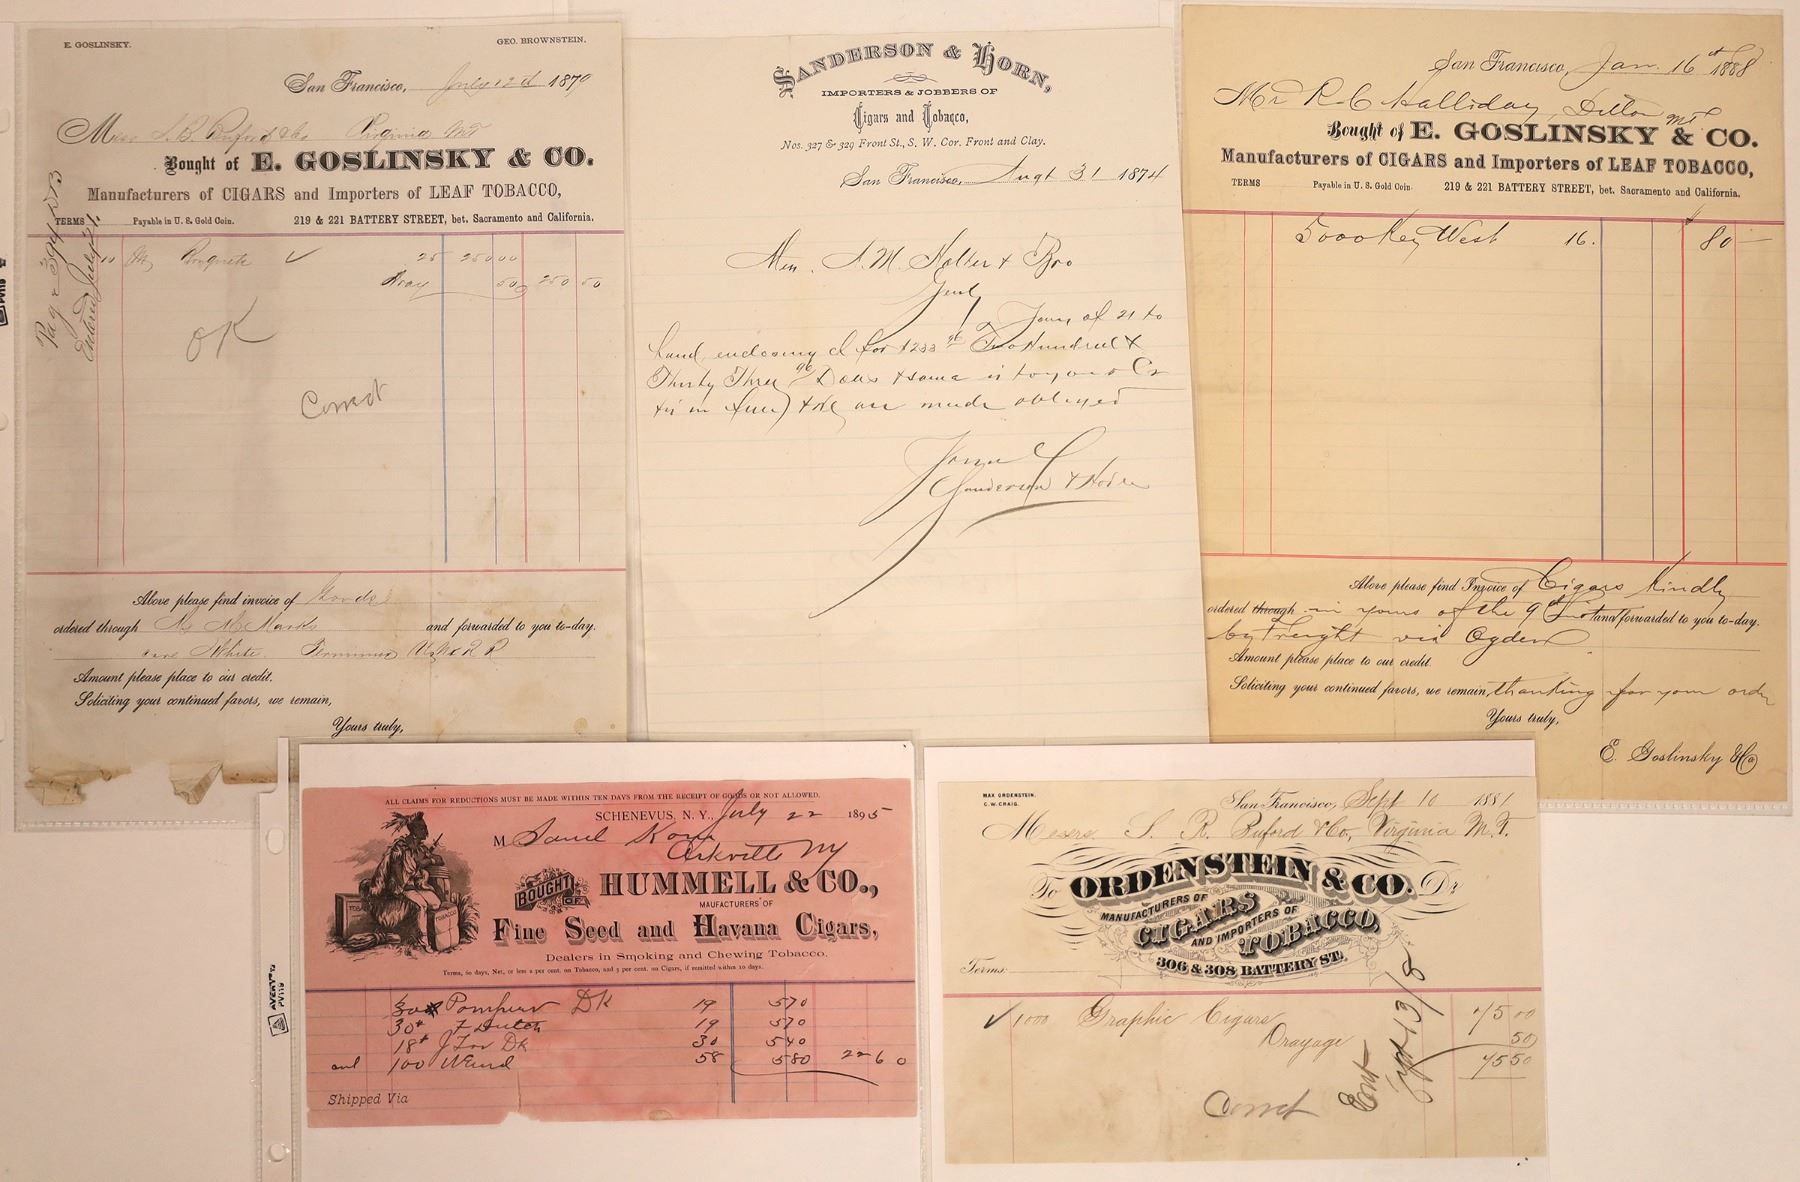 E. GOSLINSKY. GEO. BROWNSTEIN.
San Francisco, July 12th 1879
Mess S. R. Buford & Co Virginia MT
Bought of E. GOSLINSKY & CO.
Manufacturers of CIGARS and Importers of LEAF TOBACCO,
TERMS Payable in U. S. Gold Coin. 219 & 221 BATTERY STREET, bet. Sacramento and California.
Entered July 21.
10 M 25 250 00
Dray 50 250 50
OK
Correct
Above please find invoice of Goods
ordered through M Marks and forwarded to you to-day.
care White Terminus U & N R R
Amount please place to our credit.
Soliciting your continued favors, we remain,
Yours truly,
SANDERSON & HORN,
IMPORTERS & JOBBERS OF
Cigars and Tobacco,
Nos. 327 & 329 Front St., S. W. Cor. Front and Clay.
San Francisco, Augt 31 1874
Mess. A. M. Holter & Bro
Gents
Yours of 21 to
hand, enclosing d for $233 96 Two Hundred &
Thirty Three 96 Dolls & same is to your Cr
in full & we are much obliged
Yours
Sanderson & Horn
San Francisco, Jan. 16th 1888
Mr R C Halliday, Dillon MT
Bought of E. GOSLINSKY & CO.
Manufacturers of CIGARS and Importers of LEAF TOBACCO,
TERMS Payable in U. S. Gold Coin. 219 & 221 BATTERY STREET, bet. Sacramento and California.
$
5000 Key West 16. 80 —
Above please find Invoice of Cigars Kindly
ordered through in yours of the 9th Inst and forwarded to you to-day.
by Freight via Ogden
Amount please place to our credit.
Soliciting your continued favors, we remain, thanking for your order
Yours truly,
E. Goslinsky & Co
ALL CLAIMS FOR REDUCTIONS MUST BE MADE WITHIN TEN DAYS FROM THE RECEIPT OF GOODS OR NOT ALLOWED.
SCHENEVUS, N. Y., July 22 1895
M Saml Korn
Arkville NY
BOUGHT OF HUMMELL & CO.,
MAUFACTURERS OF
Fine Seed and Havana Cigars,
Dealers in Smoking and Chewing Tobacco.
Terms, 60 days, Net, or less 2 per cent. on Tobacco, and 5 per cent. on Cigars, if remitted within 10 days.
TOBACCO
30# DK 19 570
30# F Dutch 19 570
18# J Tor Dk 30 540
and 100 58 580 22 60
Shipped Via
AVERY
PV119
MAX ORDENSTEIN.
C. W. CRAIG.
San Francisco, Sept 10 1881
Messrs. S. R. Buford & Co, Virginia M.T.
To ORDENSTEIN & CO. Dr
MANUFACTURERS OF
CIGARS
AND IMPORTERS OF
TOBACCO,
306 & 308 BATTERY ST.
Terms:
1000 Graphic Cigars 75 00
Drayage 50
75 50
Correct
Ent Sept 13/8